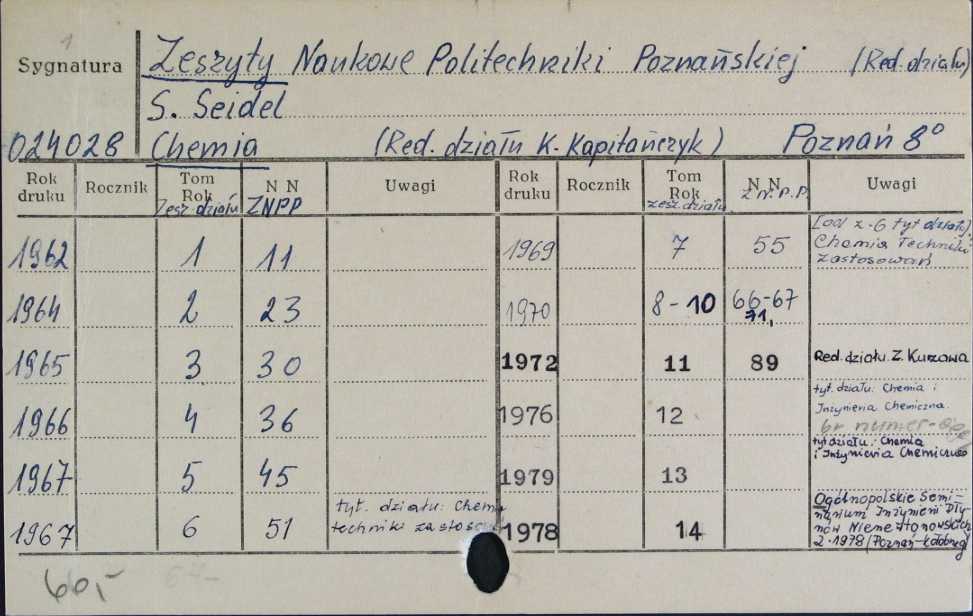 1
Sygnatura Zeszyty Naukowe Politechniki Poznańskiej (Red. działu)
S. Seidel
024028 Chemia (Red. działu K. Kapitańczyk) Poznań 8°
Rok druku Rocznik Tom Rok Zesz. działu N N ZNPP Uwagi Rok druku Rocznik Tom Rok zesz. działu N N Z.N.P.P. Uwagi
1962 1 11 1969 7 55 [od z. 6 tyt działu]: Chemia Techniki zastosowań
1964 2 23 1970 8-10 66-67 71,
1965 3 30 1972 11 89 Red. działu Z. Kurzawa
1966 4 36 1976 12 tyt. działu: Chemia i Inżynieria Chemiczna. br. numer
1967 5 45 1979 13 tyt działu: Chemia i Inżynieria Chemiczna
1967 6 51 tyt. działu: Chem techniki zastosow 1978 14 Ogólnopolskie Seminarium Inżynierii Płynów Nienewtonowskich 2. 1978 (Poznań-Kołobrzeg)
60,- 67-